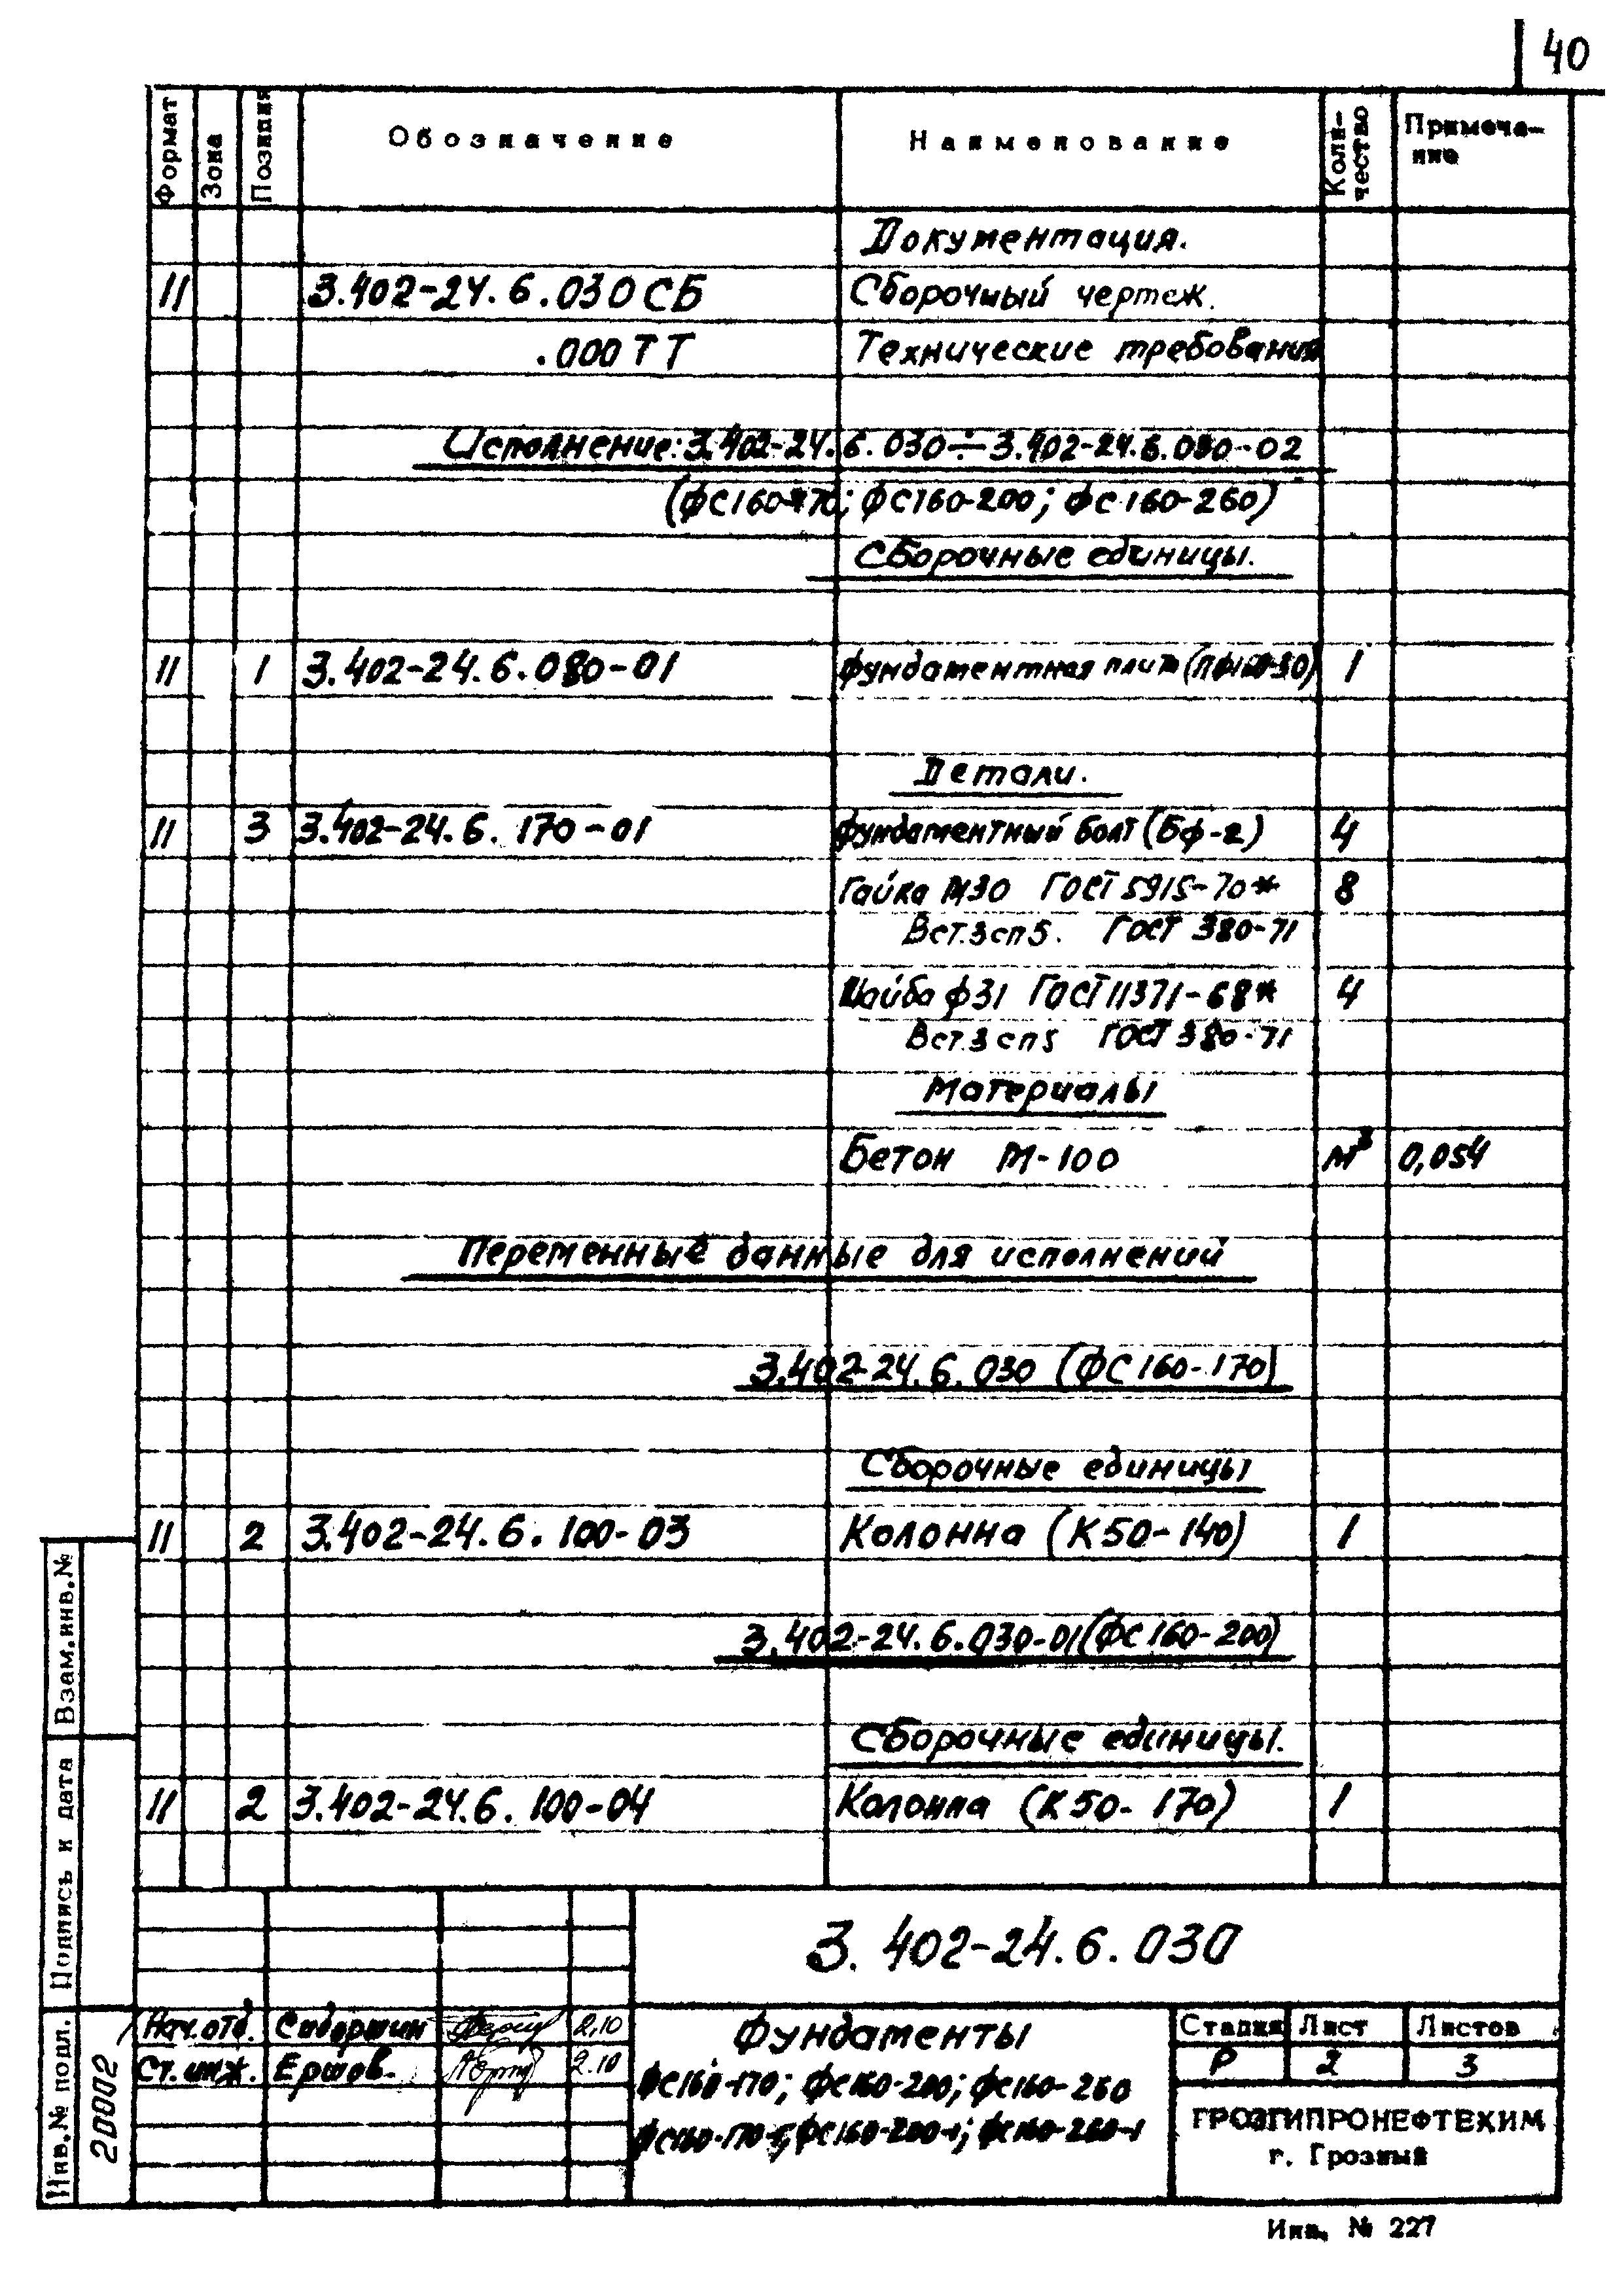 40
Формат Зона Позиция Обозначение Наименование Коли-чество Примеча-ние
Документация.
11 3.402-24.6.030 СБ Сборочный чертеж.
.000 ТТ Технические требования
Исполнение: 3.402-24.6.030÷3.402-24.6.030-02
(ФС160-170; ФС160-200; ФС160-260)
Сборочные единицы.
11 1 3.402-24.6.080-01 Фундаментная плита 1
Детали.
11 3 3.402-24.6.170-01 Фундаментный болт (БФ-2) 4
Гайка М30 ГОСТ 5915-70* 8
Вст.3сп5. ГОСТ 380-71
Шайба ф31 ГОСТ 11371-68* 4
Вст.3сп5 ГОСТ 380-71
Материалы
Бетон М-100 м³ 0,054
Переменные данные для исполнений
3.402-24.6.030 (ФС160-170)
Сборочные единицы
11 2 3.402-24.6.100-03 Колонна (К50-140) 1
3.402-24.6.030-01 (ФС160-200)
Сборочные единицы.
11 2 3.402-24.6.100-04 Колонна (К50-170) 1
Взам.инв.№
Подпись и дата
Инв.№ подл.
20002
3.402-24.6.030
Нач.отд. 2.10
Ст.инж. Ершов. 2.10
Фундаменты
ФС160-170; ФС160-200; ФС160-260
ФС160-170-1; ФС160-200-1; ФС160-260-1
Стадия Лист Листов
Р 2 3
ГРОЗГИПРОНЕФТЕХИМ
г. Грозный
Инв. № 227